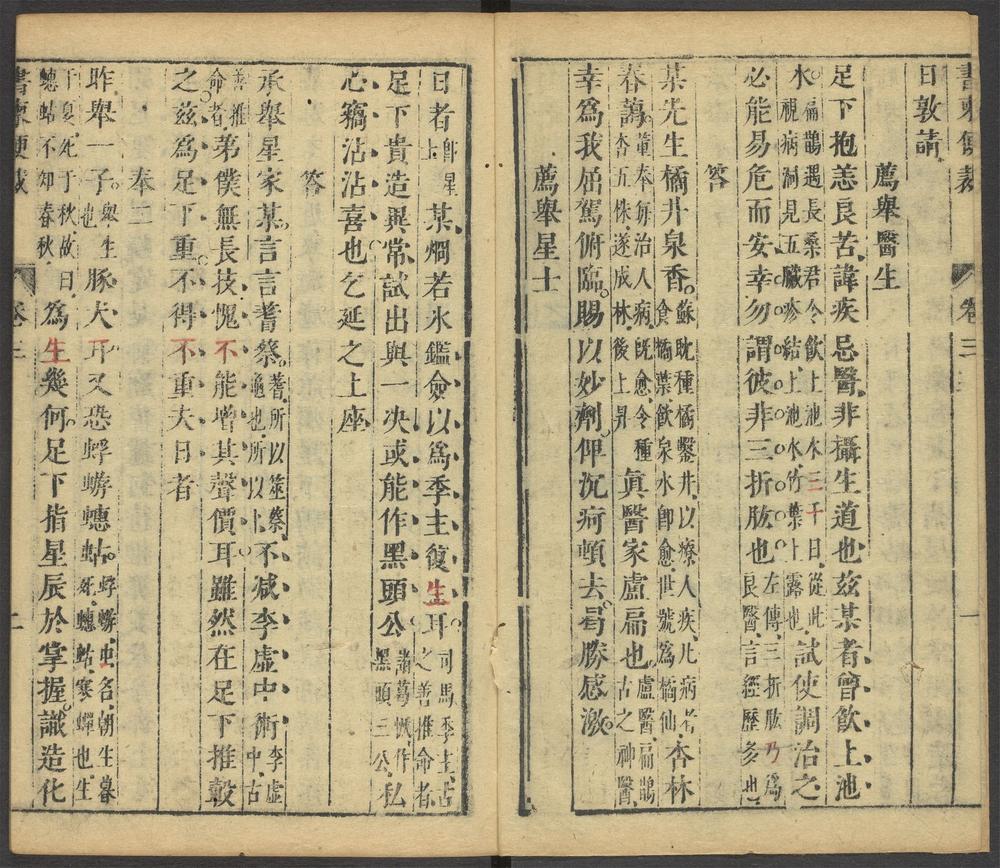 卷三 一
日敦請
薦舉醫生
足下抱恙良苦諱疾忌醫非攝生道也茲某者曾飲上池
水扁鵲遇長桑君令飲上池水三十日從此視病洞見五臟疹結上池水竹葉上露也試使調治之
必能易危而安幸勿謂彼非三折肱也左傳三折肱乃爲良醫言經歷多也
答
某先生橘井泉香蘇耽種橘鑿井以療人疾凡病者食橘葉飲泉水卽愈世號爲橘仙杏林
春藹董奉每治人病旣愈令種杏五株遂成林後上昇眞醫家盧扁也盧醫扁鵲古之神醫
幸爲我屈駕俯臨賜以妙劑俾沉疴頓去曷勝感激
薦舉星士
日者卽星士某燗若氷鑑僉以爲季主復生耳司馬季主古之善推命者
足下貴造異常試出與一决或能作黑頭公諸葛恢作黑頭三公私
心竊沾沾喜也乞延之上座
答
承舉星家某言言蓍蔡蓍所以筮蔡龜也所以卜不减李虛中術李虛中古
善推命者弟僕無長技愧不能增其聲價耳雖然在足下推轂
之茲爲足下重不得不重夫日者
奉
昨舉一子舉生也豚犬耳又恐蜉蝣蟪蛄蜉蝣虫名朝生暮死蟪蛄寒蟬也生
于夏死于秋故曰蟪蛄不知春秋爲生幾何足下指星辰於掌握識造化
卷三 二